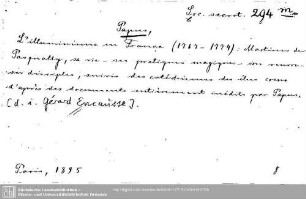 Soc. secret. 294 m
Papus,
L'illuminisme en France (1767-1774): Martines de
Pasqually, sa vie - ses pratiques magiques - son oeuvre -
ses disciples, suivis des catéchismes des élus coens
d'après des documents entièrement inédits par Papus.
[d. i. Gérard Encausse].
Paris, 1895 8